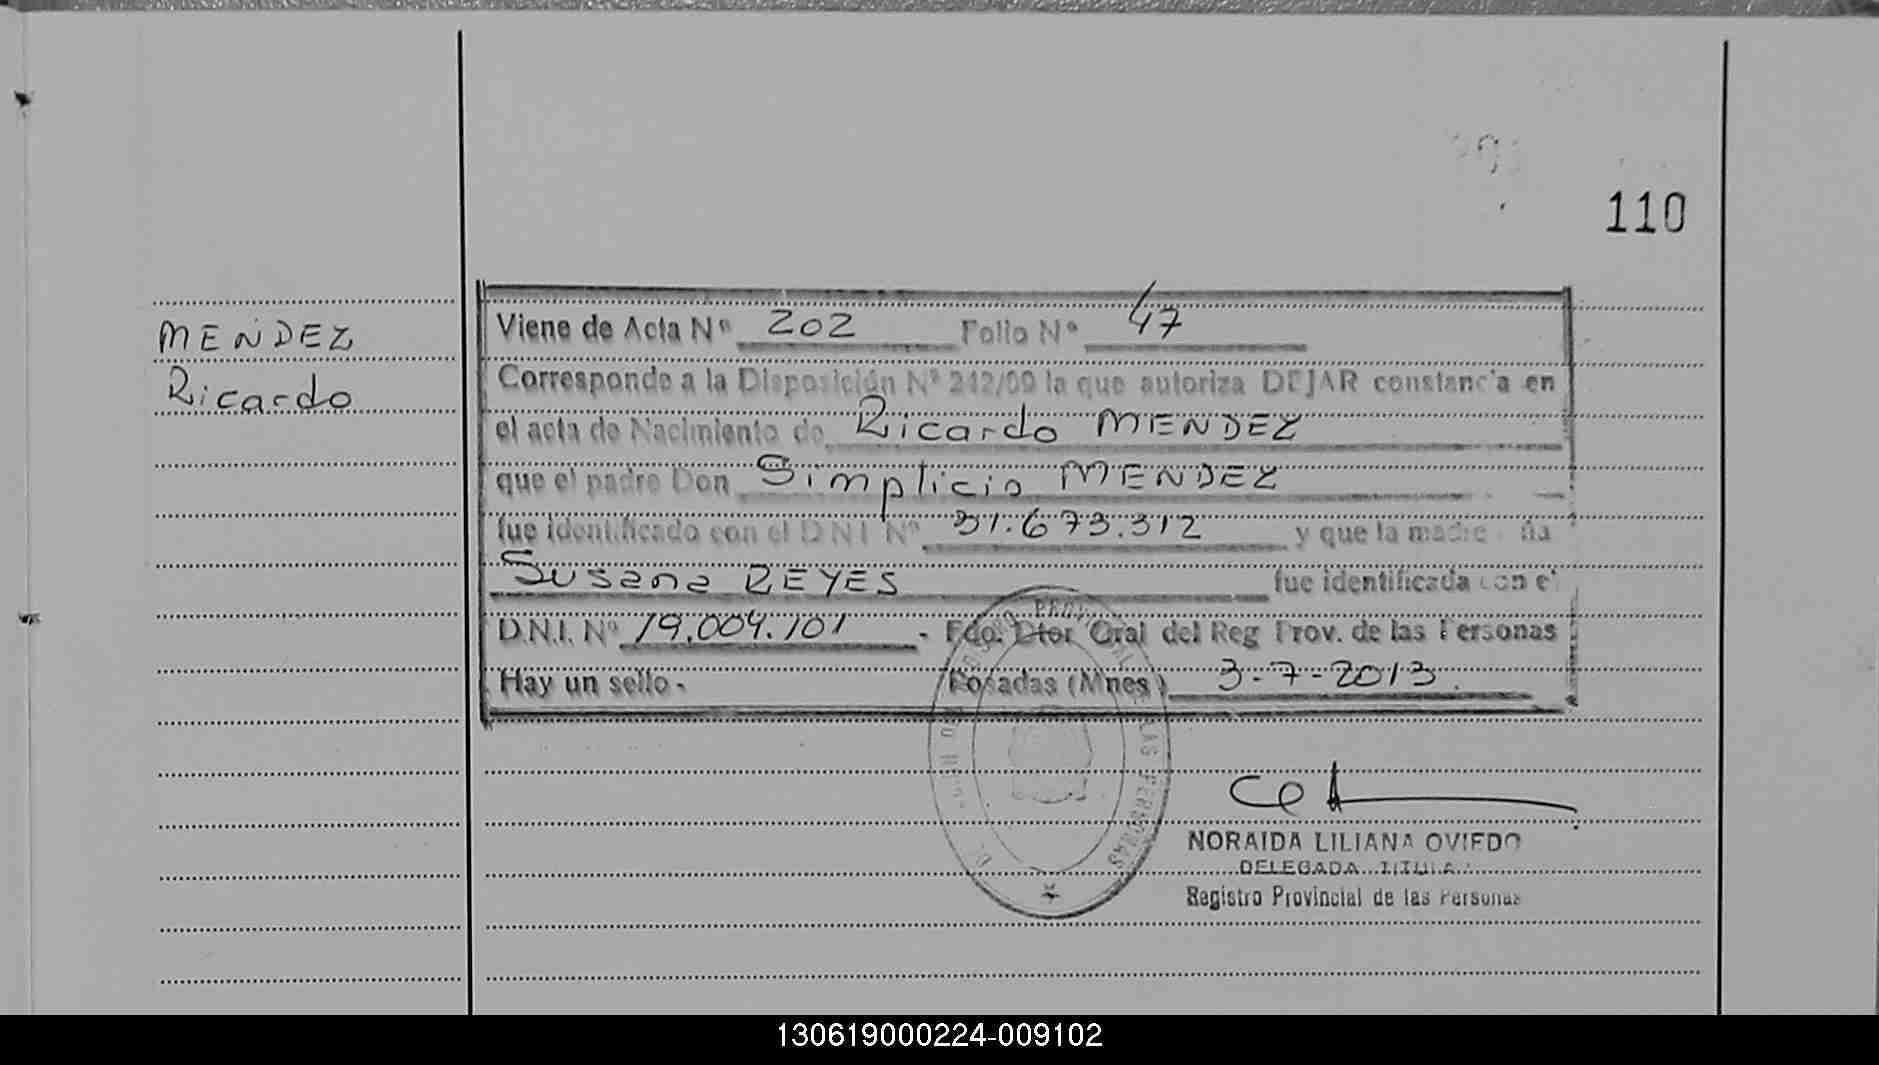 110
MENDEZ
Ricardo
Viene de Acta Nº 202 Folio Nº 47
Corresponde a la Disposición Nº 242/09 la que autoriza DEJAR constancia en
el acta de Nacimiento de Ricardo MENDEZ
que el padre Don Simplicio MENDEZ
fue identificado con el D.N.I Nº 31.673.312 y que la madre ña
Susana REYES fue identificada con el
D.N.I. Nº 19.009.101 - Fdo. Dtor Gral del Reg Prov. de las Personas
Hay un sello - Posadas (Mnes) 3-7-2013.
NORAIDA LILIANA OVIEDO
DELEGADA TITULAR
Registro Provincial de las Personas
130619000224-009102